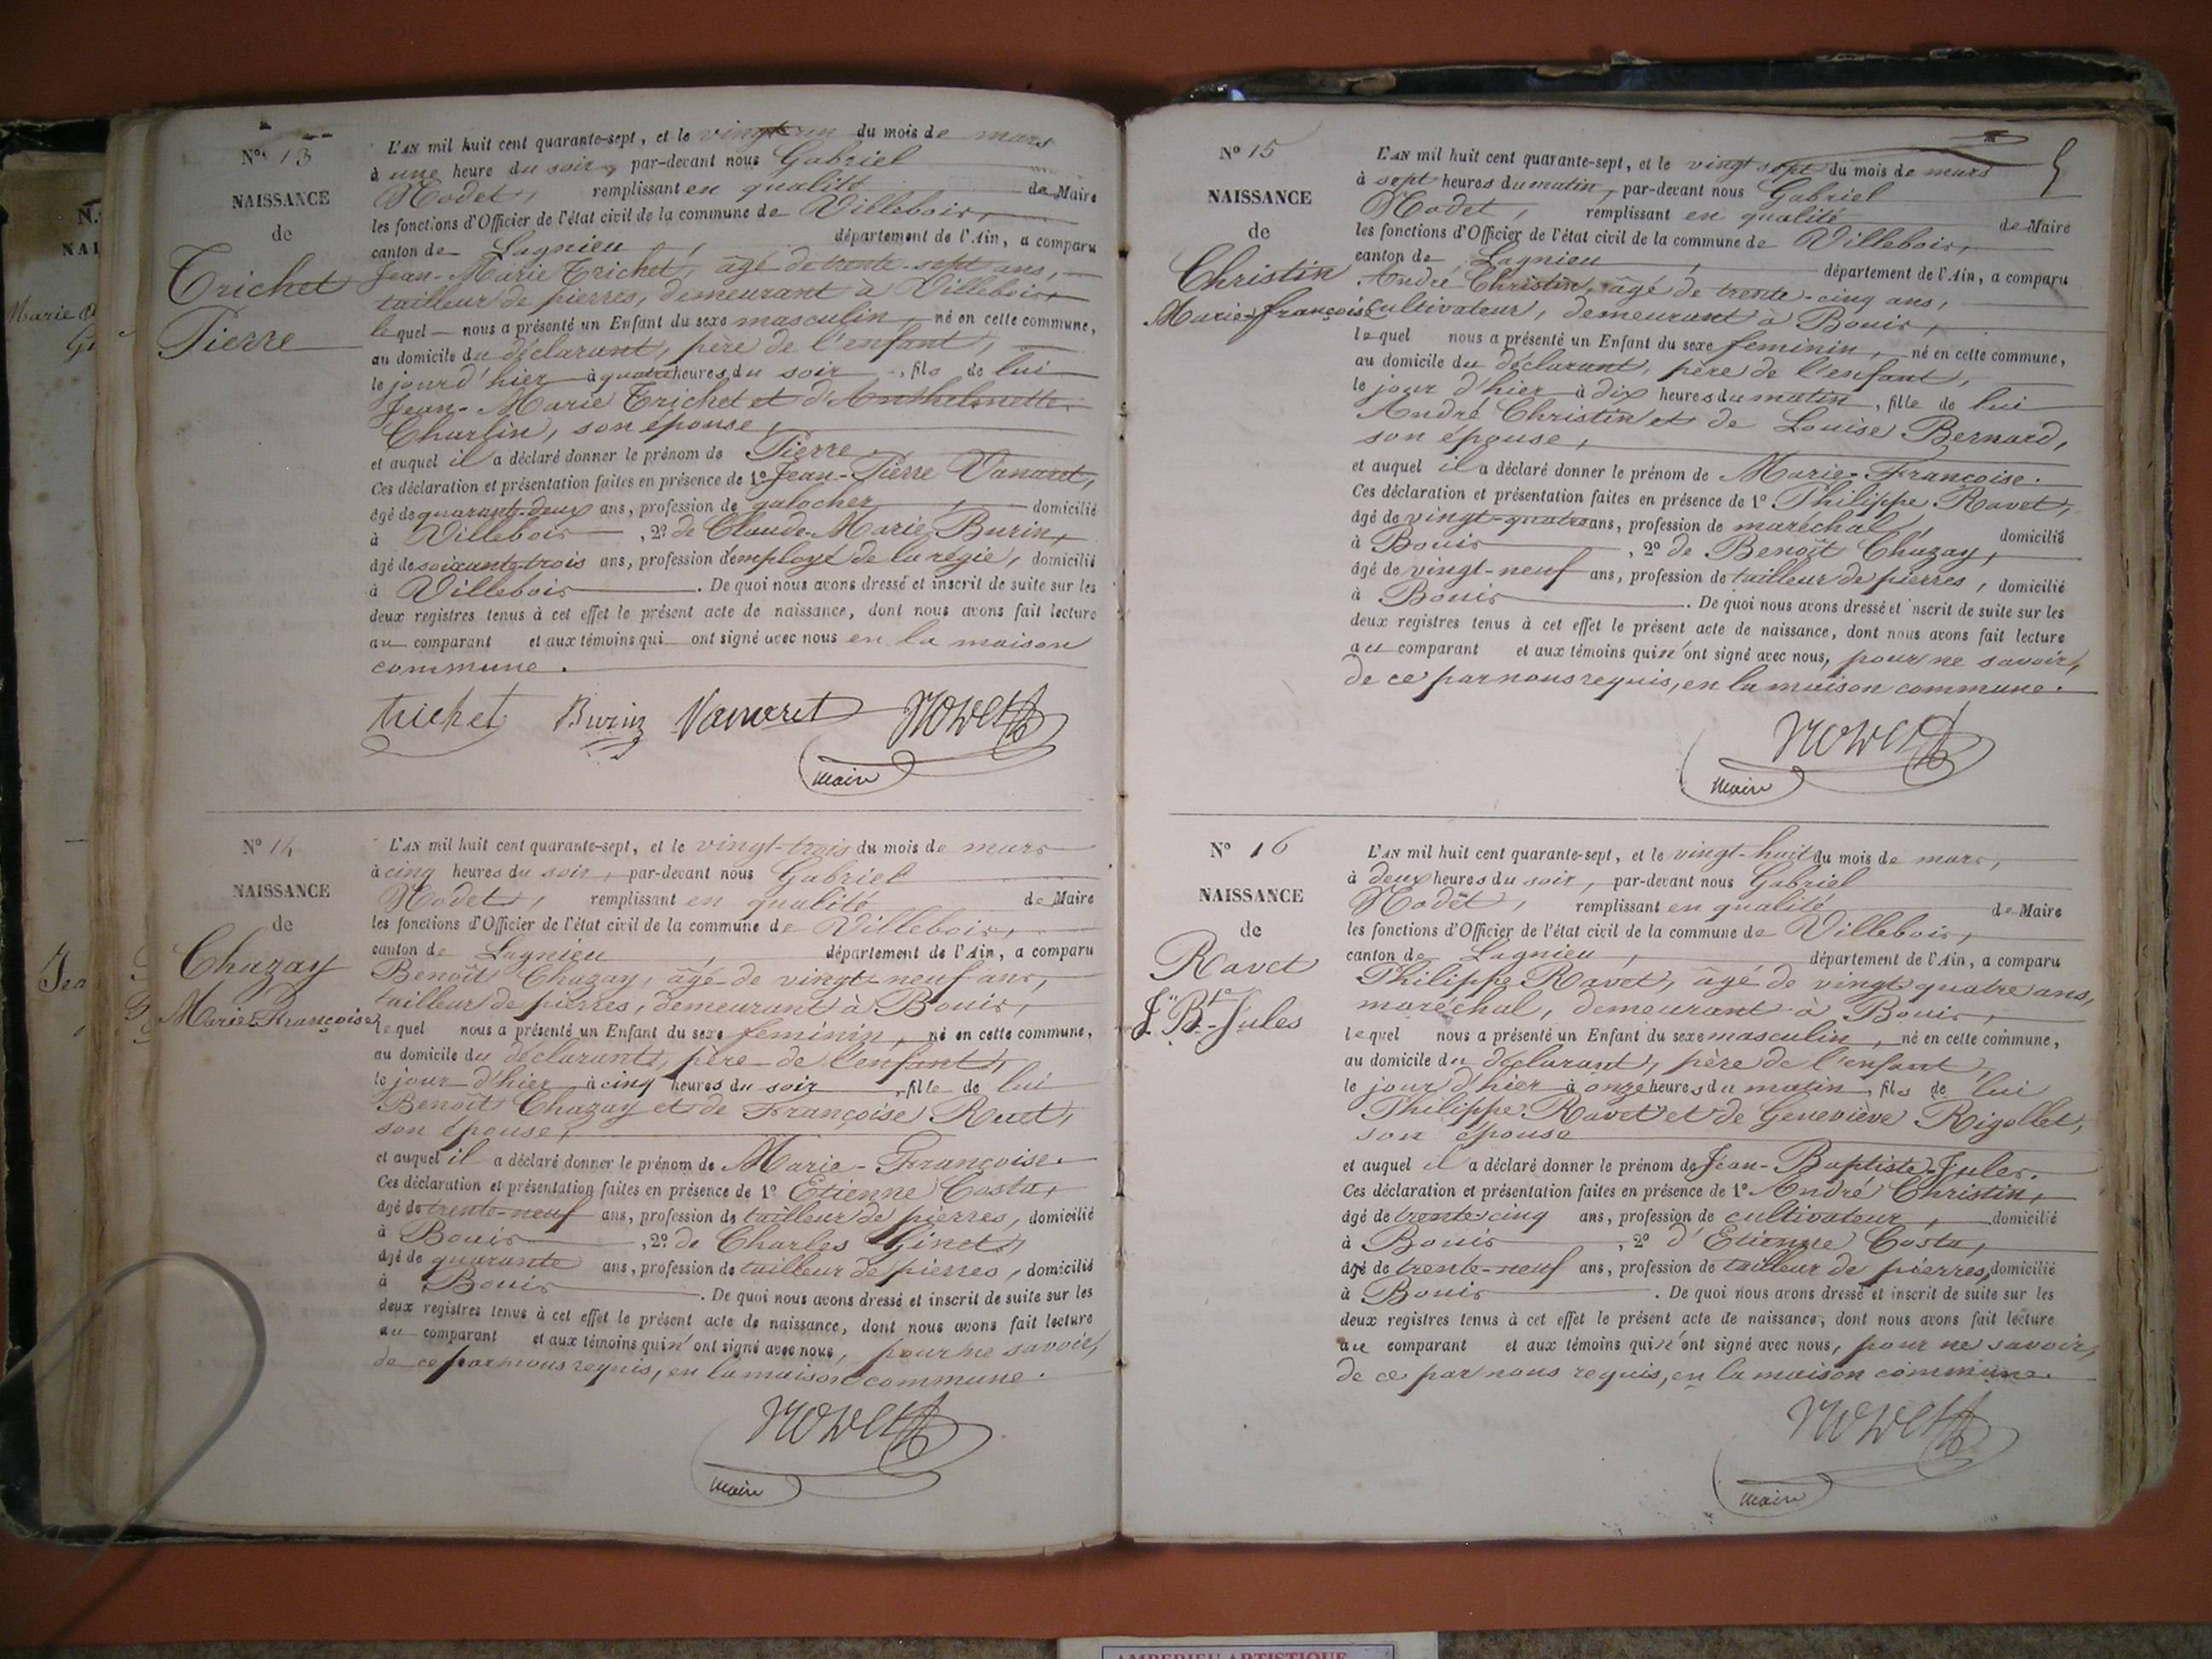 Nº 13
NAISSANCE
de
Trichet
Pierre
L'AN mil huit cent quarante-sept, et le vingt-un du mois de mars
à une heure du soir, par-devant nous Gabriel
Nodet, remplissant en qualité de Maire
les fonctions d'Officier de l'état civil de la commune de Villebois,
canton de Lagnieu, département de l'Ain, a comparu
Jean-Marie Trichet, âgé de trente-sept ans,
tailleur de pierres, demeurant à Villebois,
lequel nous a présenté un Enfant du sexe masculin, né en cette commune,
au domicile du déclarant, père de l'enfant,
le jour d'hier à quatre heures du soir, fils de lui
Jean-Marie Trichet et d'Anthelmette
Charlin, son épouse,
et auquel il a déclaré donner le prénom de Pierre.
Ces déclaration et présentation faites en présence de 1º Jean-Pierre Vanaret,
âgé de quarante-deux ans, profession de galocher, domicilié
à Villebois, 2º de Claude-Marie Burin,
âgé de soixante-trois ans, profession d'employé de la régie, domicilié
à Villebois. De quoi nous avons dressé et inscrit de suite sur les
deux registres tenus à cet effet le présent acte de naissance, dont nous avons fait lecture
au comparant et aux témoins qui ont signé avec nous en la maison
commune.
trichet Burin Vanaret Nodet
maire
Nº 14
NAISSANCE
de
Chazay
Marie-Françoise
L'AN mil huit cent quarante-sept, et le vingt-trois du mois de mars
à cinq heures du soir, par-devant nous Gabriel
Nodet, remplissant en qualité de Maire
les fonctions d'Officier de l'état civil de la commune de Villebois,
canton de Lagnieu, département de l'Ain, a comparu
Benoît Chazay, âgé de vingt-neuf ans,
tailleur de pierres, demeurant à Bouis,
lequel nous a présenté un Enfant du sexe feminin, né en cette commune,
au domicile du déclarant, père de l'enfant,
le jour d'hier à cinq heures du soir, fille de lui
Benoît Chazay et de Françoise Ruet,
son épouse,
et auquel il a déclaré donner le prénom de Marie-Françoise.
Ces déclaration et présentation faites en présence de 1º Etienne Costa,
âgé de trente-neuf ans, profession de tailleur de pierres, domicilié
à Bouis, 2º de Charles Ginet,
âgé de quarante ans, profession de tailleur de pierres, domicilié
à Bouis. De quoi nous avons dressé et inscrit de suite sur les
deux registres tenus à cet effet le présent acte de naissance, dont nous avons fait lecture
au comparant et aux témoins qui n'ont signé avec nous, pour ne savoir,
de ce par nous requis, en la maison commune.
Nodet
maire
Nº 15
NAISSANCE
de
Christin
Marie-françoise
L'AN mil huit cent quarante-sept, et le vingt sept du mois de mars
à sept heures du matin, par-devant nous Gabriel
Nodet, remplissant en qualité de Maire
les fonctions d'Officier de l'état civil de la commune de Villebois,
canton de Lagnieu, département de l'Ain, a comparu
André Christin, âgé de trente-cinq ans,
cultivateur, demeurant à Bouis,
lequel nous a présenté un Enfant du sexe feminin, né en cette commune,
au domicile du déclarant, père de l'enfant,
le jour d'hier à dix heures du matin, fille de lui
André Christin et de Louise Bernard,
son épouse,
et auquel il a déclaré donner le prénom de Marie-Françoise.
Ces déclaration et présentation faites en présence de 1º Philippe Ravet,
âgé de vingt-quatre ans, profession de maréchal, domicilié
à Bouis, 2º de Benoît Chazay,
âgé de vingt-neuf ans, profession de tailleur de pierres, domicilié
à Bouis. De quoi nous avons dressé et inscrit de suite sur les
deux registres tenus à cet effet le présent acte de naissance, dont nous avons fait lecture
au comparant et aux témoins qui n'ont signé avec nous, pour ne savoir,
de ce par nous requis, en la maison commune.
Nodet
maire
Nº 16
NAISSANCE
de
Ravet
Jn Bte-Jules
L'AN mil huit cent quarante-sept, et le vingt-huit du mois de mars,
à deux heures du soir, par-devant nous Gabriel
Nodet, remplissant en qualité de Maire
les fonctions d'Officier de l'état civil de la commune de Villebois,
canton de Lagnieu, département de l'Ain, a comparu
Philippe Ravet, âgé de vingt-quatre ans,
maréchal, demeurant à Bouis,
lequel nous a présenté un Enfant du sexe masculin, né en cette commune,
au domicile du déclarant, père de l'enfant,
le jour d'hier à onze heures du matin, fils de lui
Philippe Ravet et de Geneviève Rigollet,
son épouse
et auquel il a déclaré donner le prénom de Jean-Baptiste-Jules.
Ces déclaration et présentation faites en présence de 1º André Christin,
âgé de trente-cinq ans, profession de cultivateur, domicilié
à Bouis, 2º d'Etienne Costa,
âgé de trente-neuf ans, profession de tailleur de pierres, domicilié
à Bouis. De quoi nous avons dressé et inscrit de suite sur les
deux registres tenus à cet effet le présent acte de naissance, dont nous avons fait lecture
au comparant et aux témoins qui n'ont signé avec nous, pour ne savoir,
de ce par nous requis, en la maison commune.
Nodet
maire
AMBERIEU ARTISTIQUE